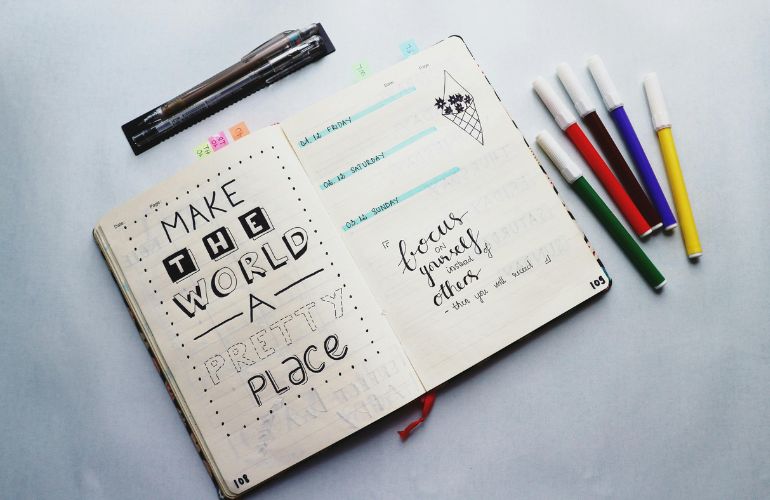 Date:
Page:
MAKE
THE
WORLD
A
PRETTY
PLACE
108
Date:
Page:
01.12 FRIDAY
02.12 SATURDAY
03.12 SUNDAY
focus
ON
yourself
instead of
others
- then you will succeed!
109